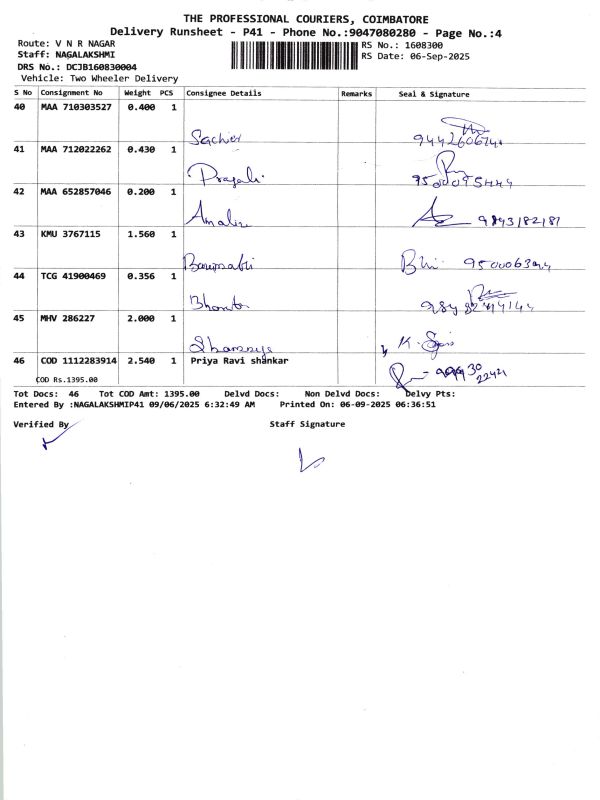 THE PROFESSIONAL COURIERS, COIMBATORE
Delivery Runsheet - P41 - Phone No.:9047080280 - Page No.:4
Route: V N R NAGAR
RS No.: 1608300
Staff: NAGALAKSHMI
RS Date: 06-Sep-2025
DRS No.: DCJB160830004
Vehicle: Two Wheeler Delivery
S No Consignment No Weight PCS Consignee Details Remarks Seal & Signature
40 MAA 710303527 0.400 1
41 MAA 712022262 0.430 1
42 MAA 652857046 0.200 1
9843182181
43 KMU 3767115 1.560 1
44 TCG 41900469 0.356 1
45 MHV 286227 2.000 1
46 COD 1112283914 2.540 1 Priya Ravi shankar
COD Rs.1395.00
Tot Docs: 46 Tot COD Amt: 1395.00 Delvd Docs: Non Delvd Docs: Delvy Pts:
Entered By :NAGALAKSHMIP41 09/06/2025 6:32:49 AM Printed On: 06-09-2025 06:36:51
Verified By Staff Signature